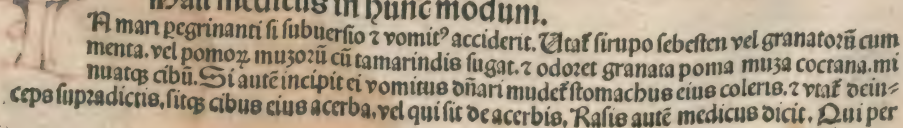 medicus in hunc modum.
A mari ꝑegrinanti ſi ſubuerſio ⁊ vomitꝰ acciderit. Utat̃ ſirupo ſebeſten vel granatoꝛũ cum
menta. vel pomoꝝ muzoꝛũ cũ tamarindis ſugat. ⁊ odoꝛet granata poma muza coctana. mi
nuatqꝫ cibũ. Si autẽ incipit ei vomitus dñari mudet̃ ſtomachus eius coleris. ⁊ vtat̃ dein⸗
ceps ſupꝛadictis, ſitqꝫ cibus eius acerba, vel qui ſit de acerbis, Raſis autẽ medicus dicit. Qui per